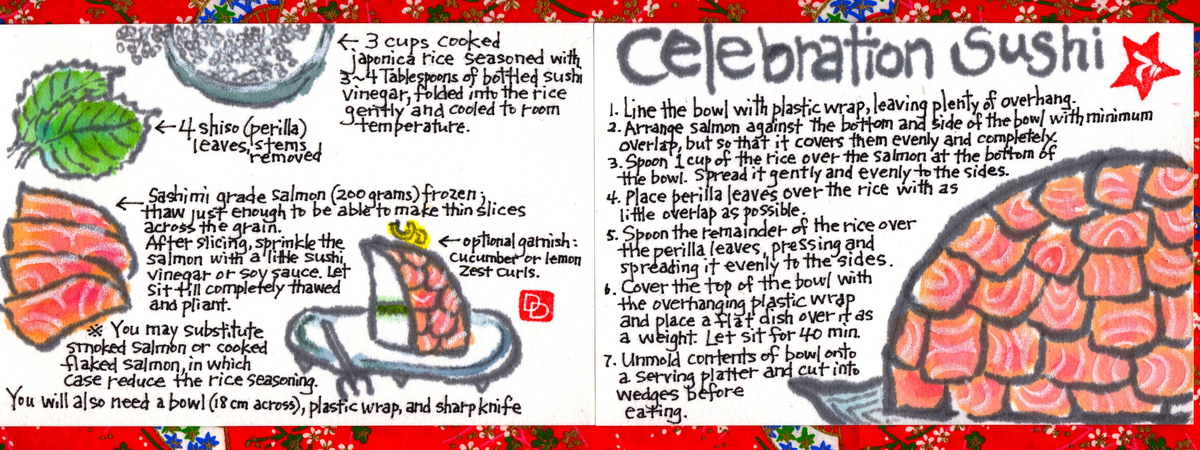 ← 3 cups cooked
japonica rice seasoned with
3~4 Tablespoons of bottled sushi
vinegar, folded into the rice
gently and cooled to room
temperature.
← 4 shiso (perilla)
leaves, stems
removed
← Sashimi grade salmon (200 grams) frozen;
thaw just enough to be able to make thin slices
across the grain.
After slicing, sprinkle the
salmon with a little sushi
vinegar or soy sauce. Let
sit till completely thawed
and pliant.
← optional garnish:
cucumber or lemon
zest curls.
※ You may substitute
smoked salmon or cooked
flaked salmon, in which
case reduce the rice seasoning.
You will also need a bowl (18 cm across), plastic wrap, and sharp knife
Celebration Sushi
1. Line the bowl with plastic wrap, leaving plenty of overhang.
2. Arrange salmon against the bottom and side of the bowl with minimum
overlap, but so that it covers them evenly and completely.
3. Spoon 1 cup of the rice over the salmon at the bottom of
the bowl. Spread it gently and evenly to the sides.
4. Place perilla leaves over the rice with as
little overlap as possible.
5. Spoon the remainder of the rice over
the perilla leaves, pressing and
spreading it evenly to the sides.
6. Cover the top of the bowl with
the overhanging plastic wrap
and place a flat dish over it as
a weight. Let sit for 40 min.
7. Unmold contents of bowl onto
a serving platter and cut into
wedges before
eating.